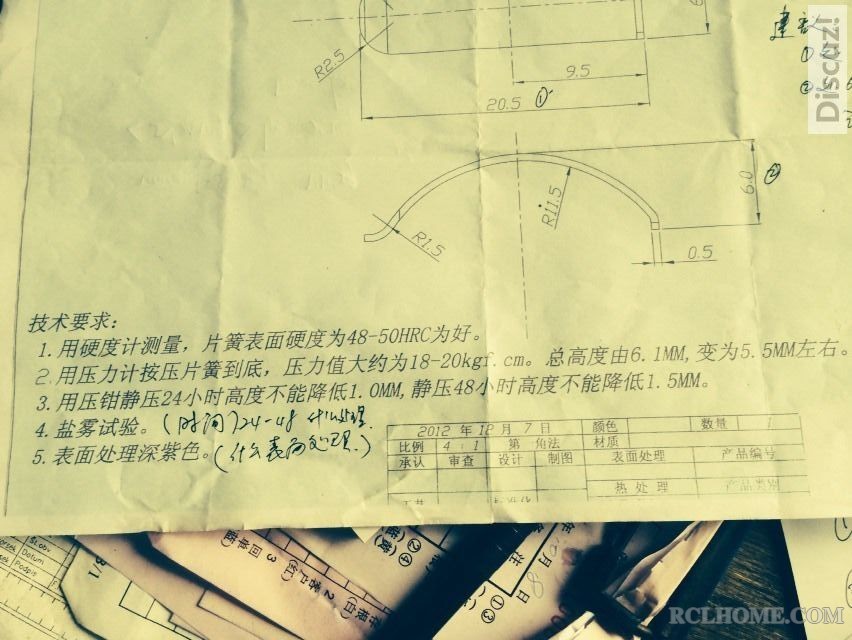 建议
①
②
R2.5
9.5
20.5 ①
6.0 ②
R1.5
R11.5
0.5
技术要求:
1. 用硬度计测量，片簧表面硬度为48-50HRC为好。
2. 用压力计按压片簧到底，压力值大约为18-20kgf.cm。总高度由6.1MM,变为5.5MM左右。
3. 用压钳静压24小时高度不能降低1.0MM,静压48小时高度不能降低1.5MM。
4. 盐雾试验。(时间)24-48 什么处理.
5. 表面处理深紫色。(什么表面处理.)
2012 年 12 月 7 日 颜色 数量 1
比例 4:1 第 角法 材质
承认 审查 设计 制图 表面处理 产品编号
热处理 产品类别
Discuz!
3 回单联(红)
2 客户(白)
年 月 日
注
①③
②④
B/1
Datum
Podpis
RCLHOME.COM